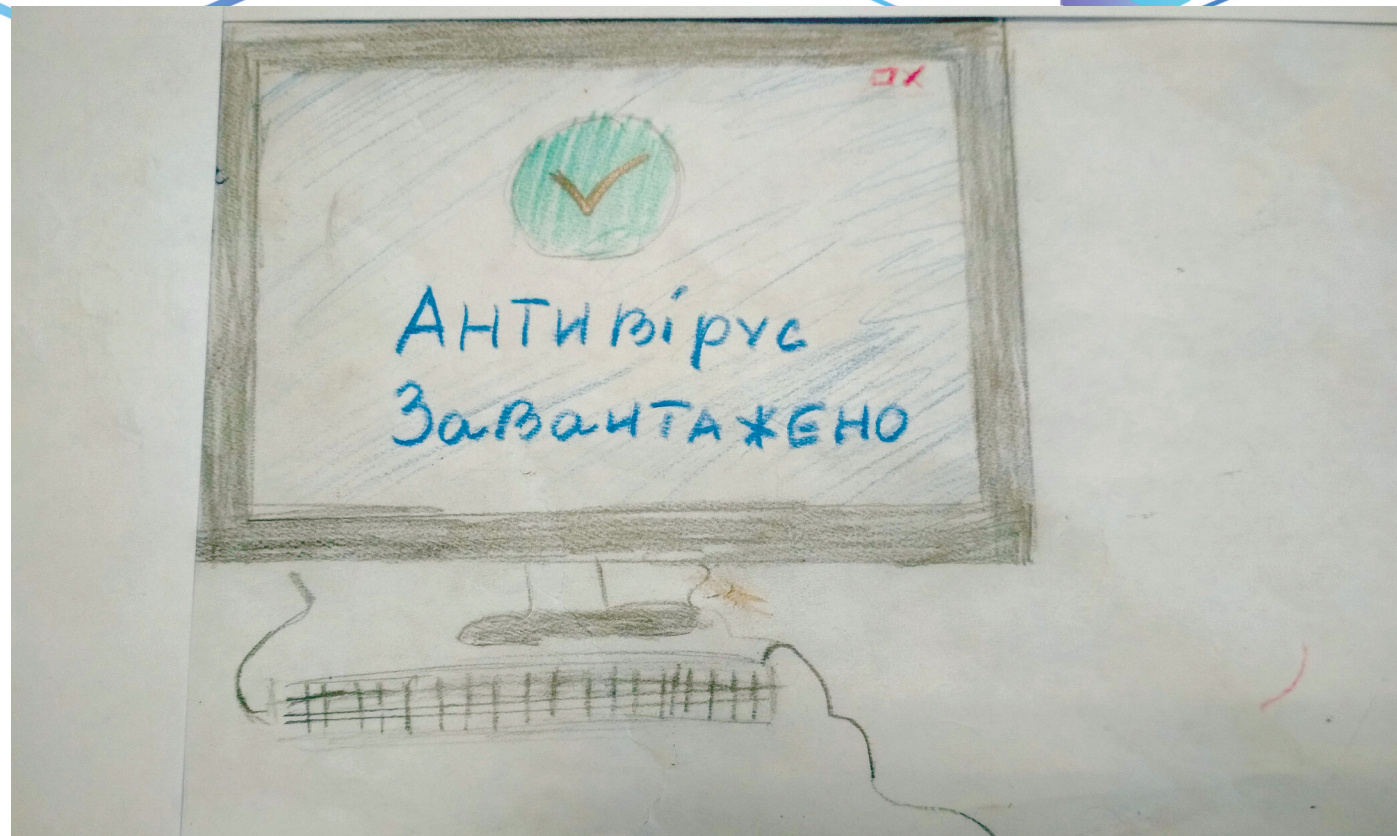 Антивірус
Завантажено